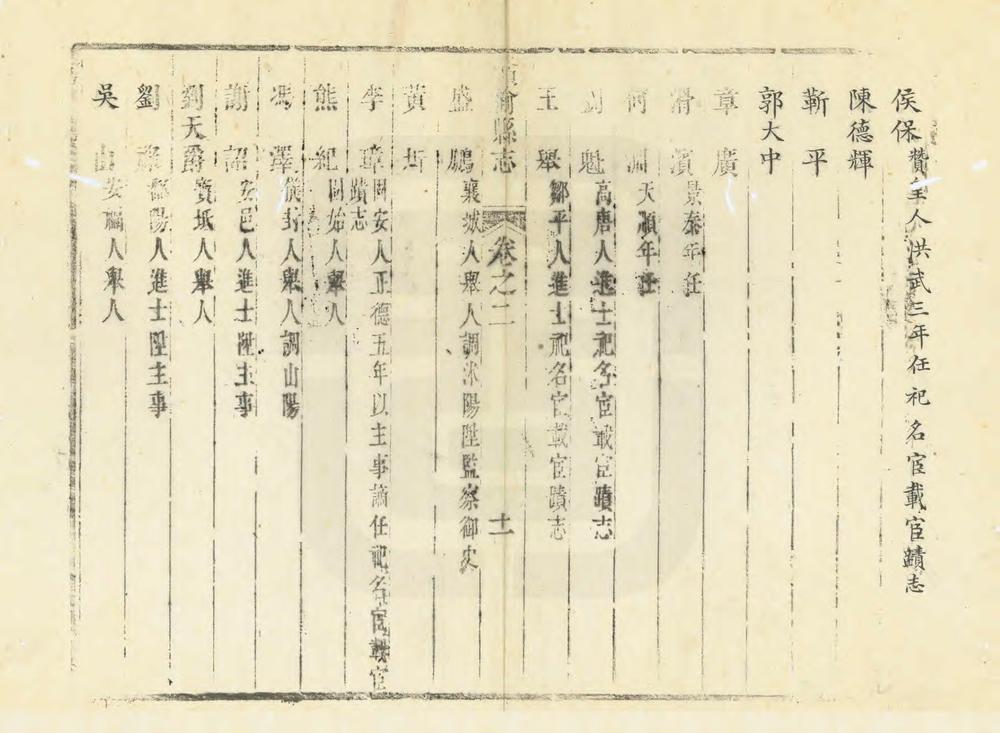 侯保 贊皇人洪武三年任祀名宦載宦蹟志
陳德輝
靳平
郭大中
章廣
滑濱 景泰年任
何淵 天順年任
劉魁 高唐人進士祀名宦載宦蹟志
王舉 鄒平人進士祀名宦載宦蹟志
榆縣志 卷之二 十一
盛鵬 襄城人舉人調沭陽陞監察御史
黃
李瑋 固安人正德五年以主事謫任祀名宦載宦
蹟志
熊紀 固始人舉人
馮澤 儀封人舉人調山陽
謝詔 安邑人進士陞主事
劉天爵 寶坻人舉人
劉 陽人進士陞主事
吳山 安福人舉人